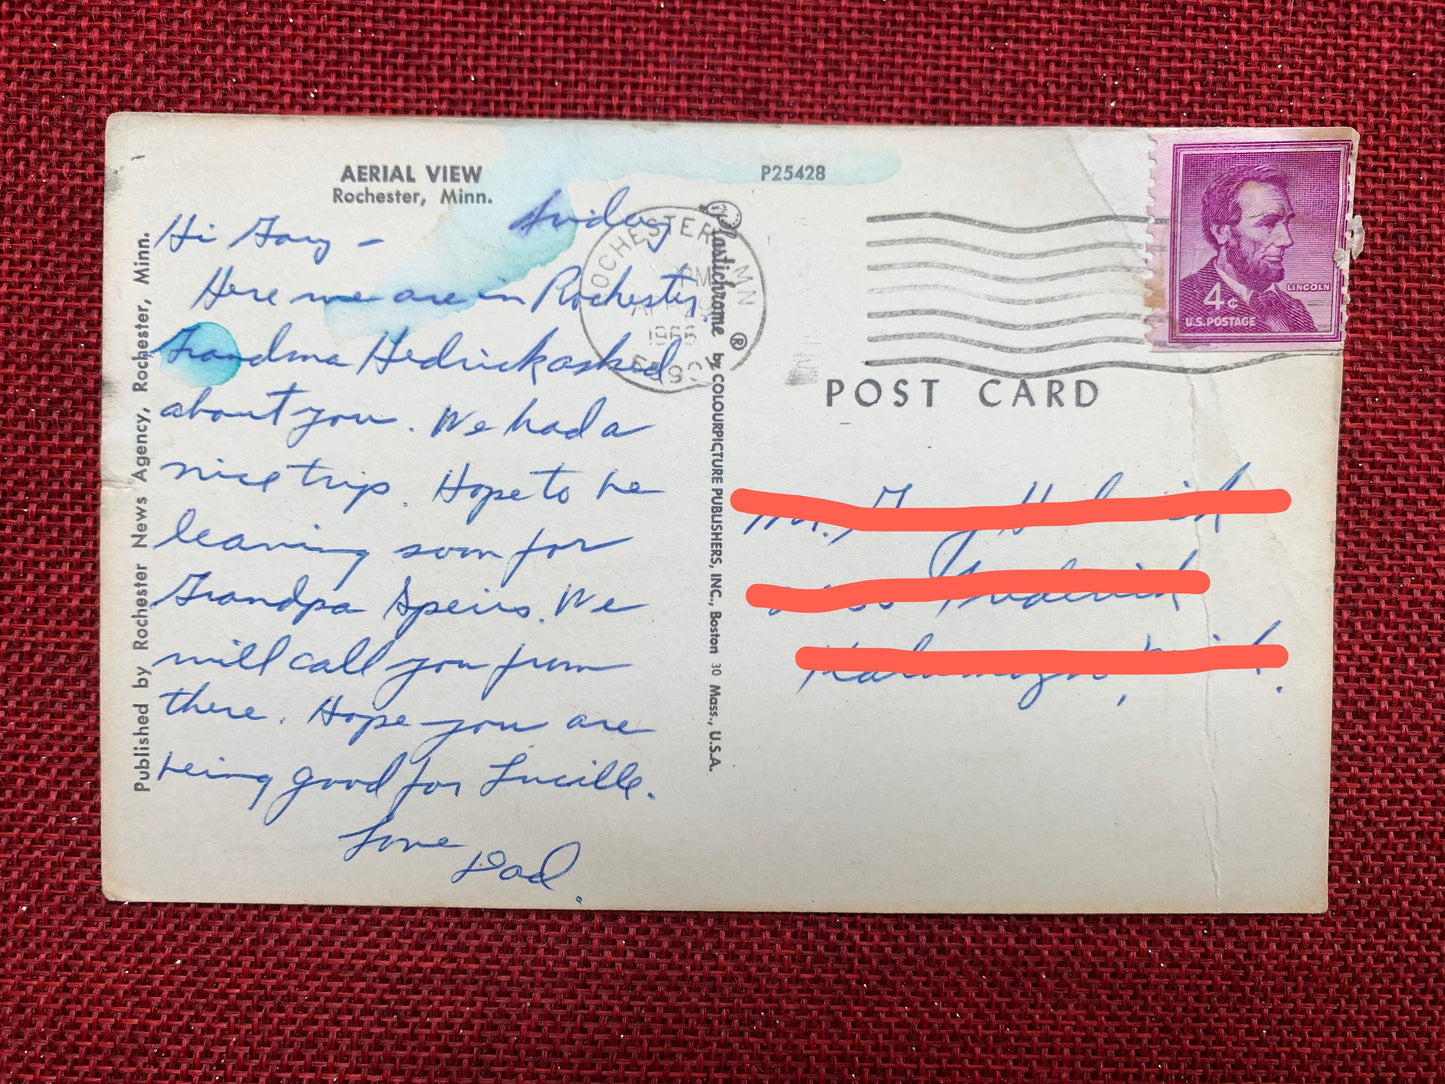 AERIAL VIEW
Rochester, Minn.
P25428
Hi Gary –
Here we are in Rochester.
Grandma Hedrick asked
about you. We had a
nice trip. Hope to be
leaving soon for
Grandpa Speirs. We
will call you from
there. Hope you are
being good for Lucille.
Love
Dad.
Published by Rochester News Agency, Rochester, Minn.
Plastichrome ® by COLOURPICTURE PUBLISHERS, INC., Boston 30 Mass., U.S.A.
OCHESTER MINN
PM
POST CARD
LINCOLN
4¢
U.S. POSTAGE